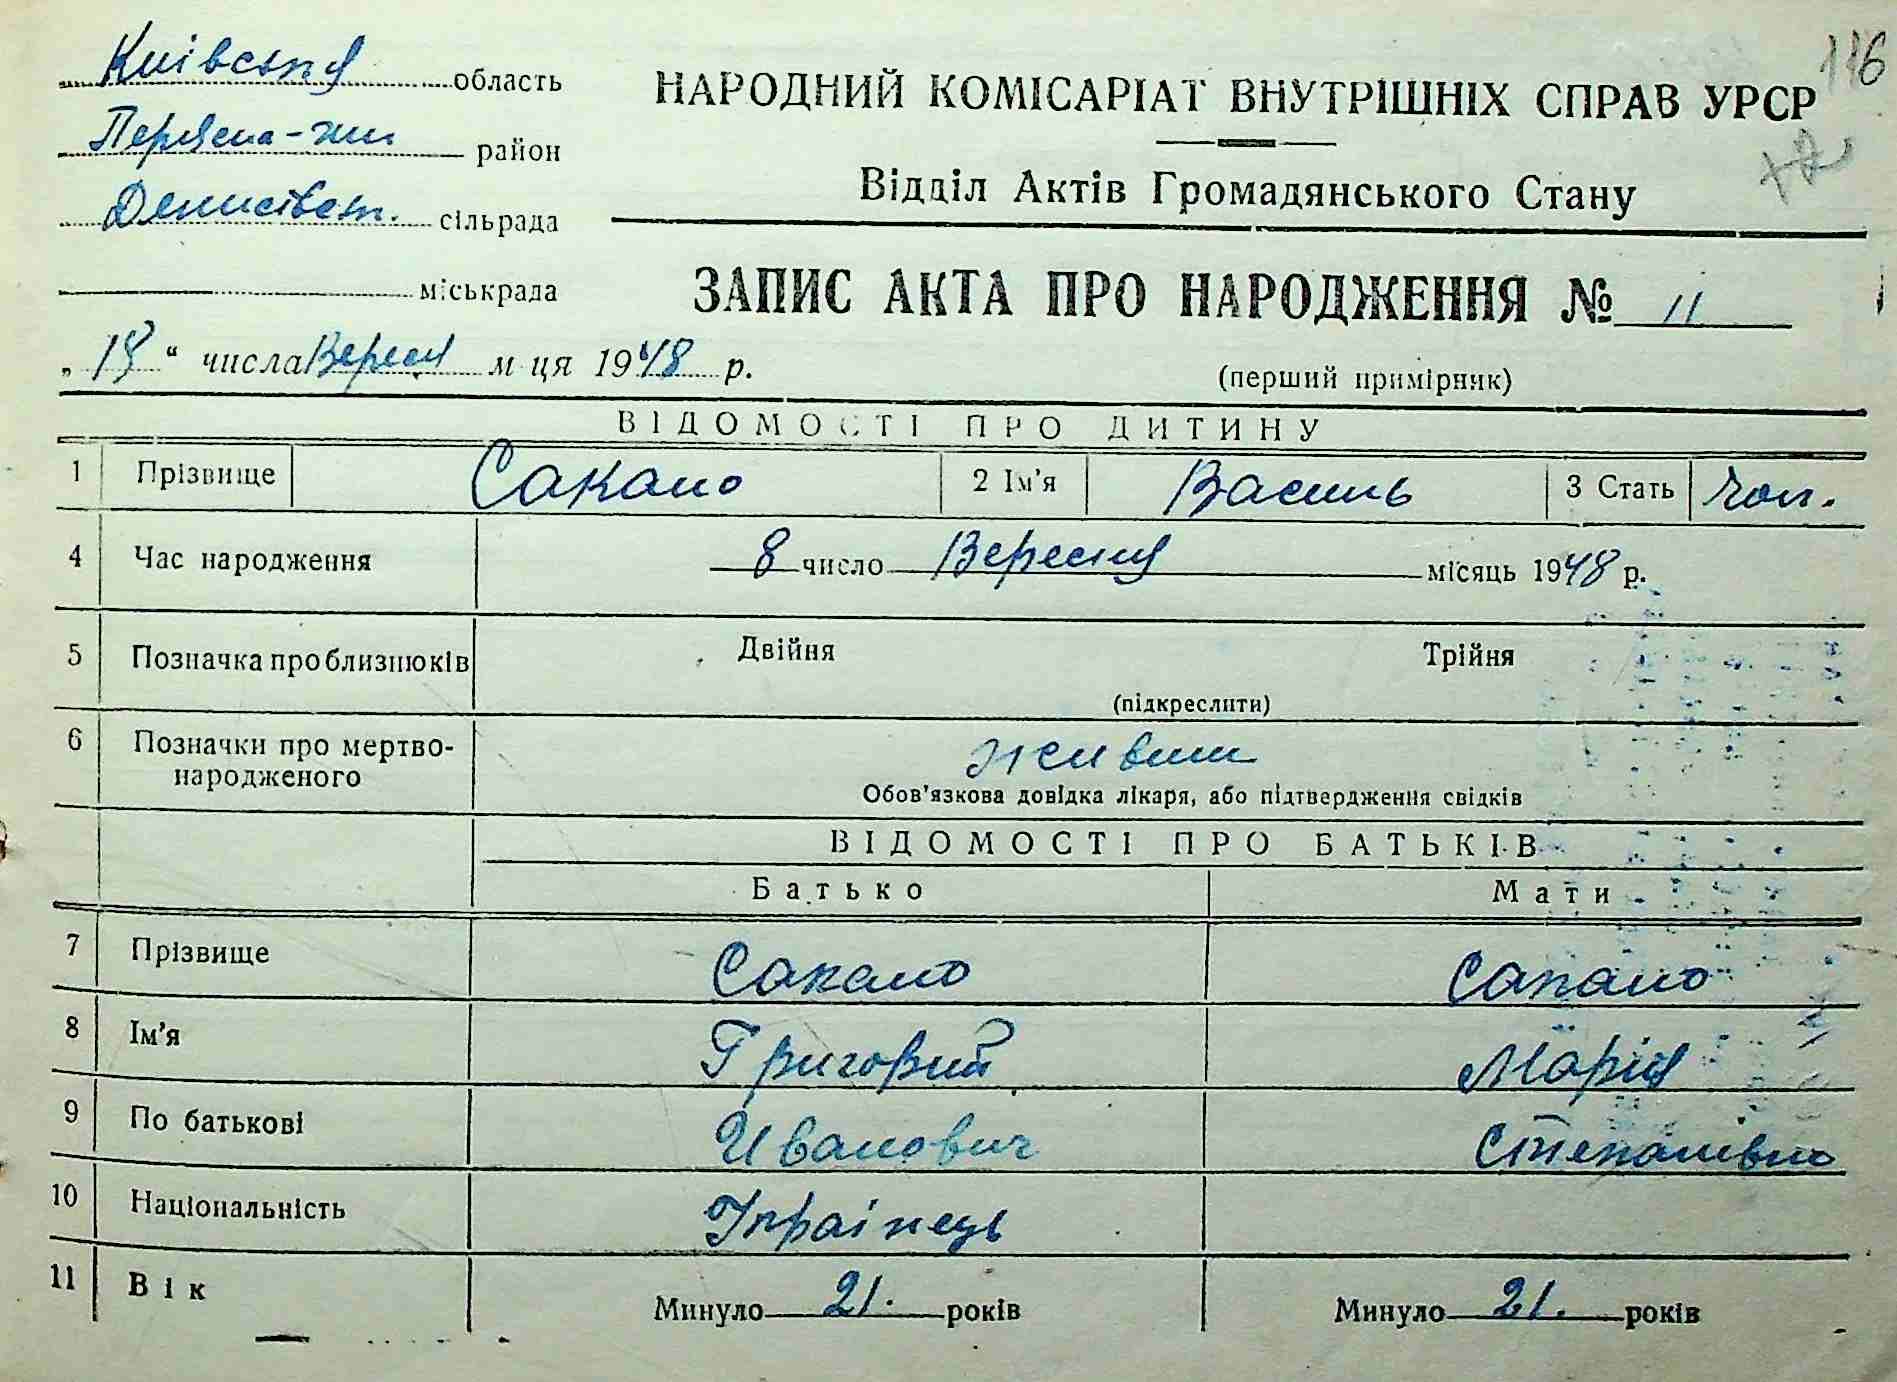 116
Київська область
НАРОДНИЙ КОМІСАРІАТ ВНУТРІШНІХ СПРАВ УРСР
район
Відділ Актів Громадянського Стану
Денисівськ. сільрада
міськрада
ЗАПИС АКТА ПРО НАРОДЖЕННЯ № 11
„18“ числа Вересня м-ця 1948 р.
(перший примірник)
ВІДОМОСТІ ПРО ДИТИНУ
1 Прізвище Сакало 2 Ім'я Василь 3 Стать чол.
4 Час народження 8 число Вересня місяць 1948 р.
5 Позначка про близнюків Двійня Трійня
(підкреслити)
6 Позначки про мертво-
народженого живий
Обов'язкова довідка лікаря, або підтвердження свідків
ВІДОМОСТІ ПРО БАТЬКІВ
Батько Мати
7 Прізвище Сакало Сакало
8 Ім'я Григорий Марія
9 По батькові Иванович Степанівна
10 Національність Українець
11 Вік Минуло 21. років Минуло 21. років